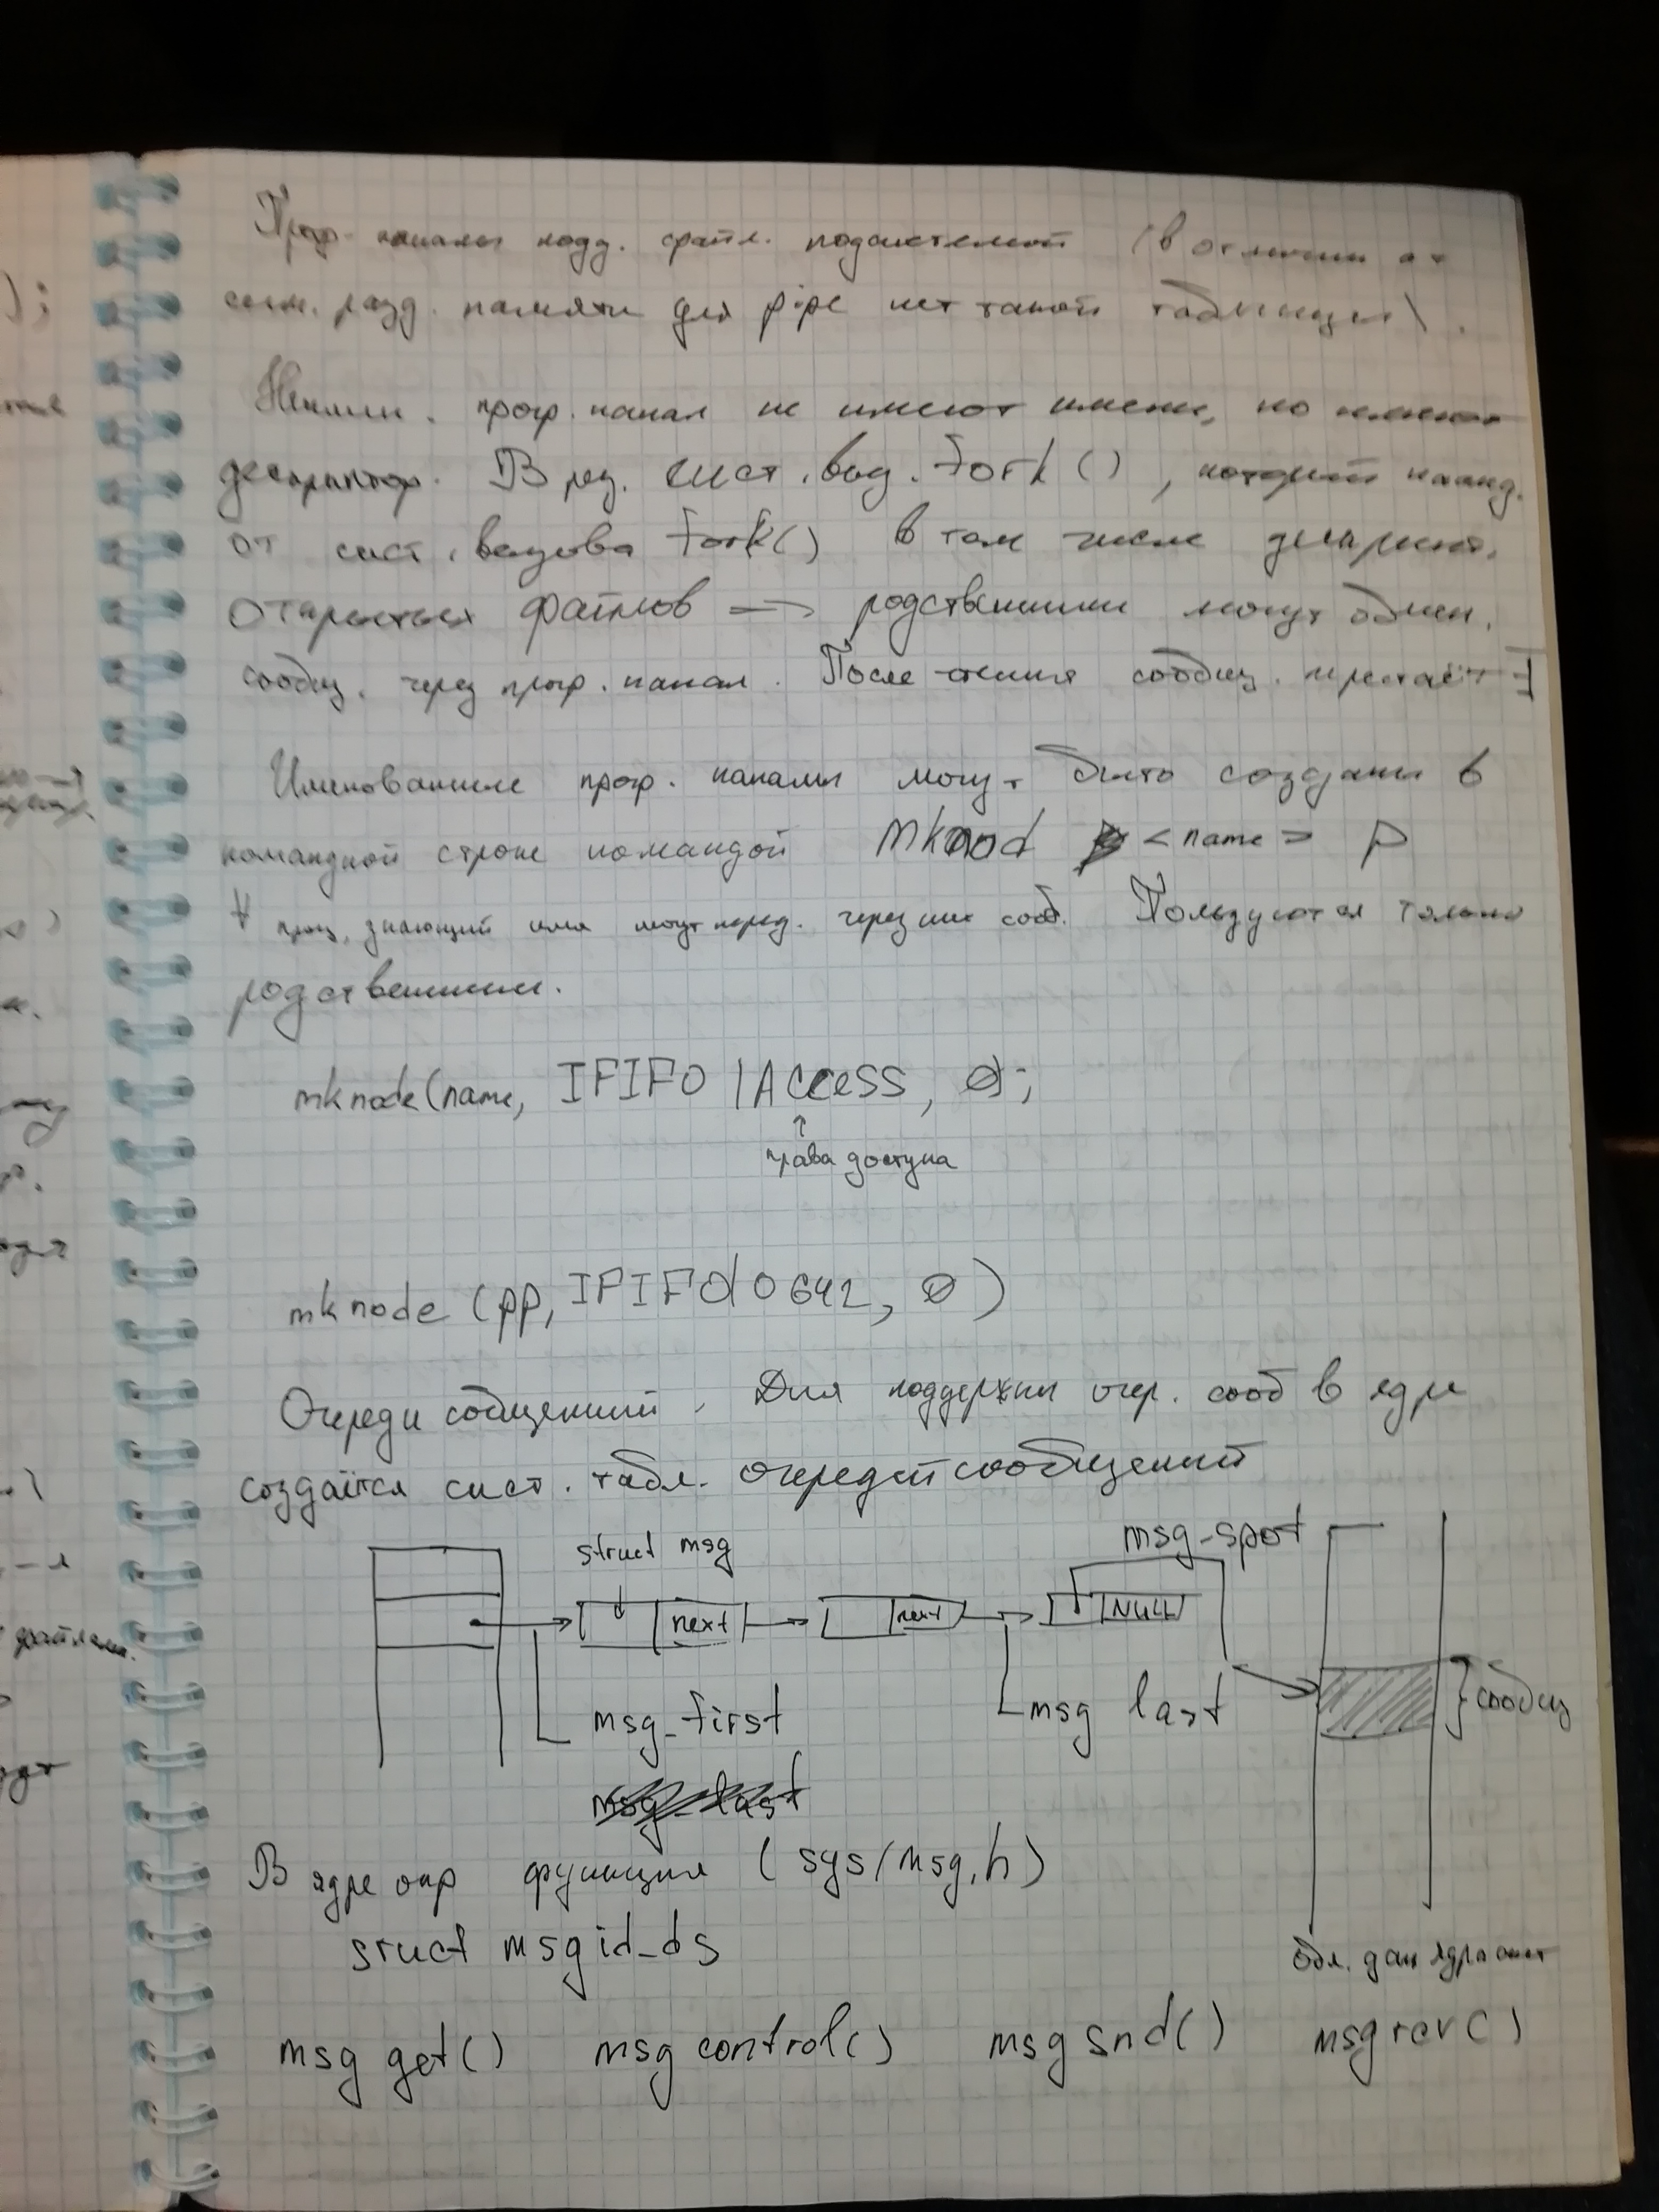 Прогр. каналы подд. файл. подсистемой (в отличии от
сегм. разд. памяти для pipe нет такой таблицы).
Неимен. прогр. канал не имеют имени, но имеют
дескриптор. В рез. сист. выз. fork(), который
от сист. вызова fork() в том числе дескрипт.
открытых файлов => родственники могут обмен.
сообщ. через прогр. канал. После чтения сообщ. перестаёт ∃
Именованные прогр. каналы могут быть созданы в
командной строке командой mknod <name> p
∀ проц, знающий имя могут перед. через них сооб. Пользуются только
родственники.
mknode(name, IFIFO | ACCESS, 0);
↑
права доступа
mknode (pp, IFIFO|0642, 0)
Очереди сообщений. Для поддержки очер. сооб в ядре
создаётся сист. табл. очередей сообщений
struct msg
msg-spot
next
next
NULL
msg_first
msg last
сообщ
В ядре опр функция (sys/msg.h)
struct msgid_ds
обл. дан ядра сист
msg get() msg control() msg snd() msg rcv()